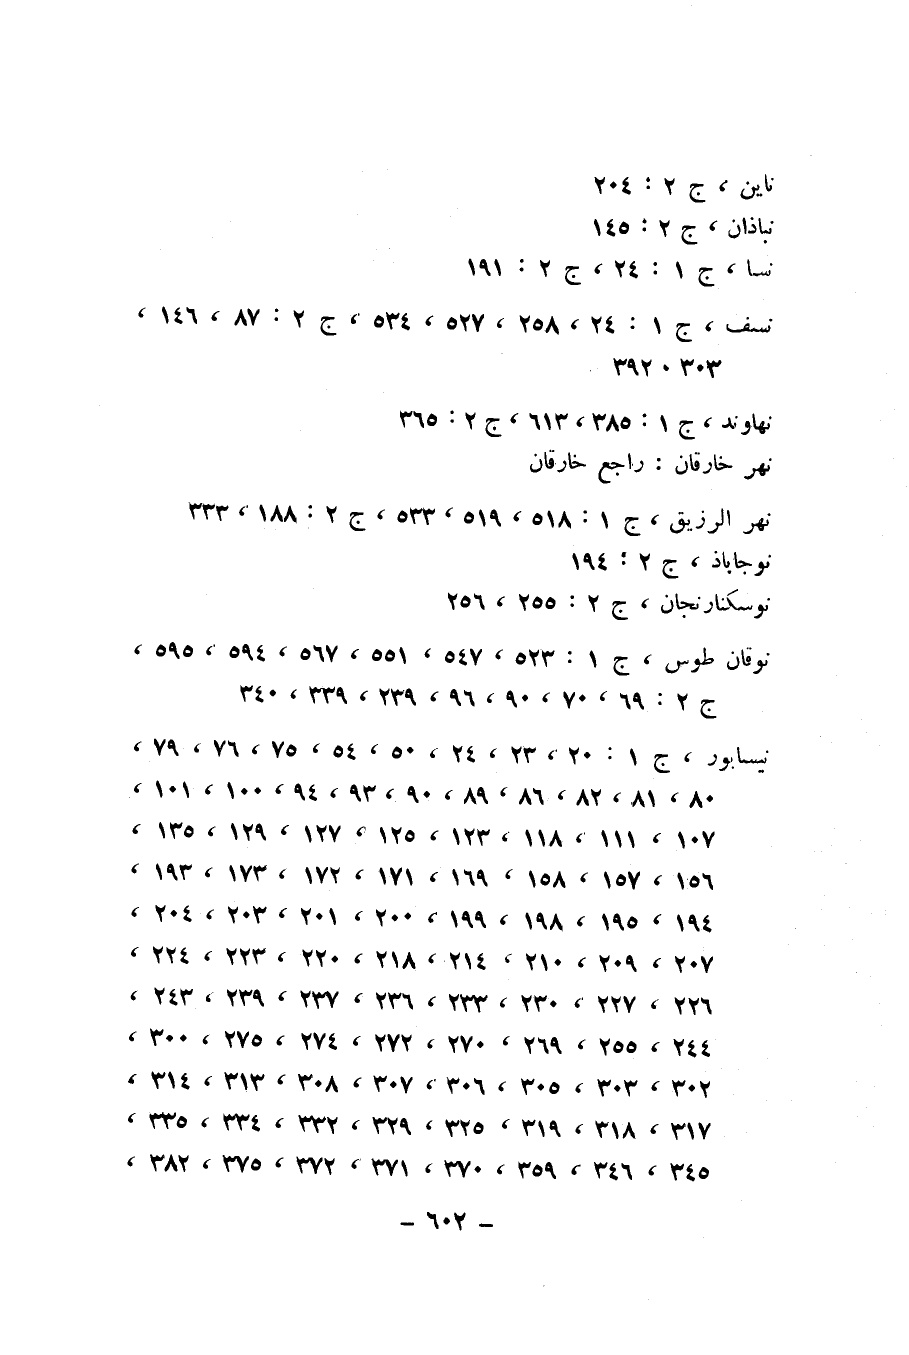 ناين ، ج ٢ : ٢٠٤
نباذان ، ج ٢ : ١٤٥
نسا ، ج ١ : ٢٤ ، ج ٢ : ١٩١
نسف ، ج ١ : ٢٤ ، ٢٥٨ ، ٥٢٧ ، ٥٣٤ ، ج ٢ : ٨٧ ، ١٤٦ ،
٣٠٣ ٠ ٣٩٢
نهاوند ، ج ١ : ٣٨٥ ، ٦١٣ ، ج ٢ : ٣٦٥
نهر خارقان : راجع خارقان
نهر الرزيق ، ج ١ : ٥١٨ ، ٥١٩ ، ٥٣٣ ، ج ٢ : ١٨٨ ، ٣٣٣
نوجاباذ ، ج ٢ : ١٩٤
نوسكنارنجان ، ج ٢ : ٢٥٥ ، ٢٥٦
نوقان طوس ، ج ١ : ٥٢٣ ، ٥٤٧ ، ٥٥١ ، ٥٦٧ ، ٥٩٤ ، ٥٩٥ ،
ج ٢ : ٦٩ ، ٧٠ ، ٩٠ ، ٩٦ ، ٢٣٩ ، ٣٣٩ ، ٣٤٠
نيسابور ، ج ١ : ٢٠ ، ٢٣ ، ٢٤ ، ٥٠ ، ٥٤ ، ٧٥ ، ٧٦ ، ٧٩ ،
٨٠ ، ٨١ ، ٨٢ ، ٨٦ ، ٨٩ ، ٩٠ ، ٩٣ ، ٩٤ ، ١٠٠ ، ١٠١ ،
١٠٧ ، ١١١ ، ١١٨ ، ١٢٣ ، ١٢٥ ، ١٢٧ ، ١٢٩ ، ١٣٥ ،
١٥٦ ، ١٥٧ ، ١٥٨ ، ١٦٩ ، ١٧١ ، ١٧٢ ، ١٧٣ ، ١٩٣ ،
١٩٤ ، ١٩٥ ، ١٩٨ ، ١٩٩ ، ٢٠٠ ، ٢٠١ ، ٢٠٣ ، ٢٠٤ ،
٢٠٧ ، ٢٠٩ ، ٢١٠ ، ٢١٤ ، ٢١٨ ، ٢٢٠ ، ٢٢٣ ، ٢٢٤ ،
٢٢٦ ، ٢٢٧ ، ٢٣٠ ، ٢٣٣ ، ٢٣٦ ، ٢٣٧ ، ٢٣٩ ، ٢٤٣ ،
٢٤٤ ، ٢٥٥ ، ٢٦٩ ، ٢٧٠ ، ٢٧٢ ، ٢٧٤ ، ٢٧٥ ، ٣٠٠ ،
٣٠٢ ، ٣٠٣ ، ٣٠٥ ، ٣٠٦ ، ٣٠٧ ، ٣٠٨ ، ٣١٣ ، ٣١٤ ،
٣١٧ ، ٣١٨ ، ٣١٩ ، ٣٢٥ ، ٣٢٩ ، ٣٣٢ ، ٣٣٤ ، ٣٣٥ ،
٣٤٥ ، ٣٤٦ ، ٣٥٩ ، ٣٧٠ ، ٣٧١ ، ٣٧٢ ، ٣٧٥ ، ٣٨٢ ،
– ٦٠٢ –